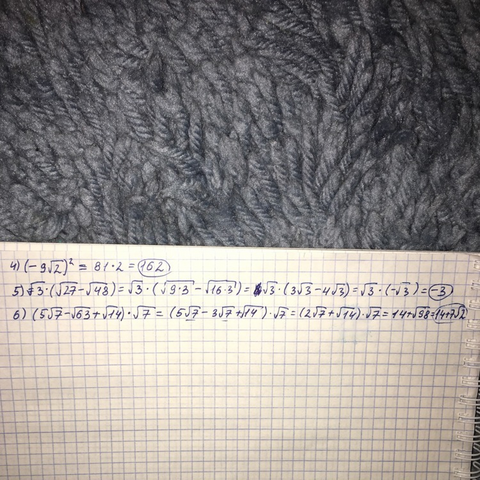 4) (-9√2)² = 81·2 = 162
5) √3·(√27-√48) = √3·(√9·3-√16·3) = √3·(3√3-4√3) = √3·(-√3) = -3
6) (5√7-√63+√14)·√7 = (5√7-3√7+√14)·√7 = (2√7+√14)·√7 = 14+√98 = 14+7√2